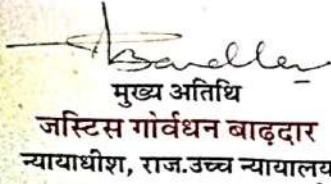 मुख्य अतिथि
जस्टिस गोर्वधन बाढ़दार
न्यायाधीश, राज.उच्च न्यायालय